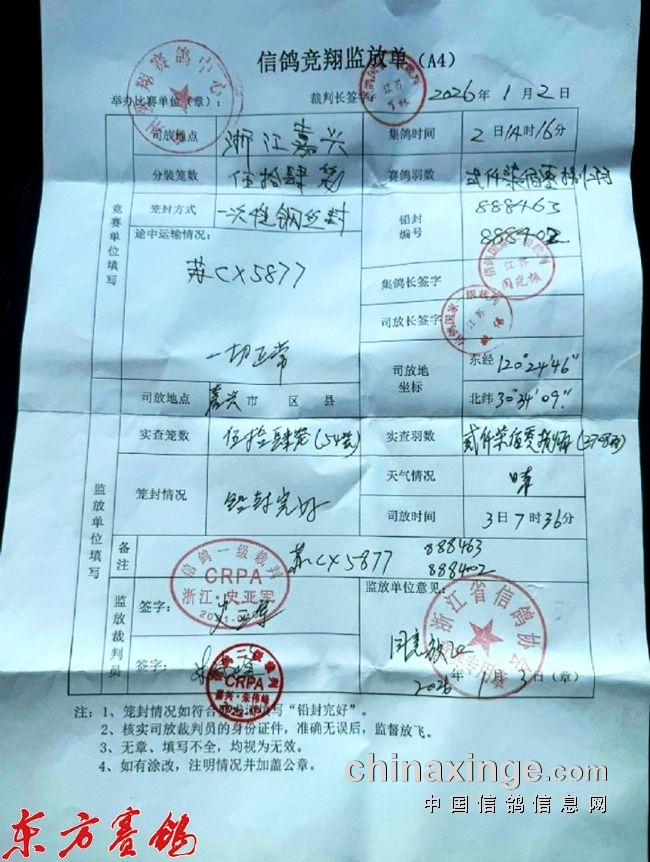 信鸽竞翔监放单（A4）
举办比赛单位（章）： 裁判长签字： 2026年1月2日
竞赛单位填写
司放地点 浙江嘉兴 集鸽时间 2日14时16分
分装笼数 伍拾肆笼 赛鸽羽数
笼封方式 一次性钢丝封 铅封编号 888463
888402
途中运输情况：
苏CX5877
一切正常
集鸽长签字
司放长签字
司放地坐标 东经 120°24'46"
北纬 30°34'09"
司放地点 嘉兴市 区 县
监放单位填写
实查笼数 伍拾肆笼(54笼) 实查羽数
笼封情况 铅封完好 天气情况 晴
司放时间 3日7时36分
备注 苏CX5877 888463
888402
监放裁判员
签字： 监放单位意见：
同意放飞
签字： 2026年1月3日（章）
信鸽一级裁判
CRPA
浙江·史亚军
CRPA
嘉兴·朱伟峰
浙江省信鸽协会
注：1、笼封情况如符合要求请填写“铅封完好”。
2、核实司放裁判员的身份证件，准确无误后，监督放飞。
3、无章、填写不全，均视为无效。
4、如有涂改，注明情况并加盖公章。
chinaxinge.com
中国信鸽信息网
东方赛鸽